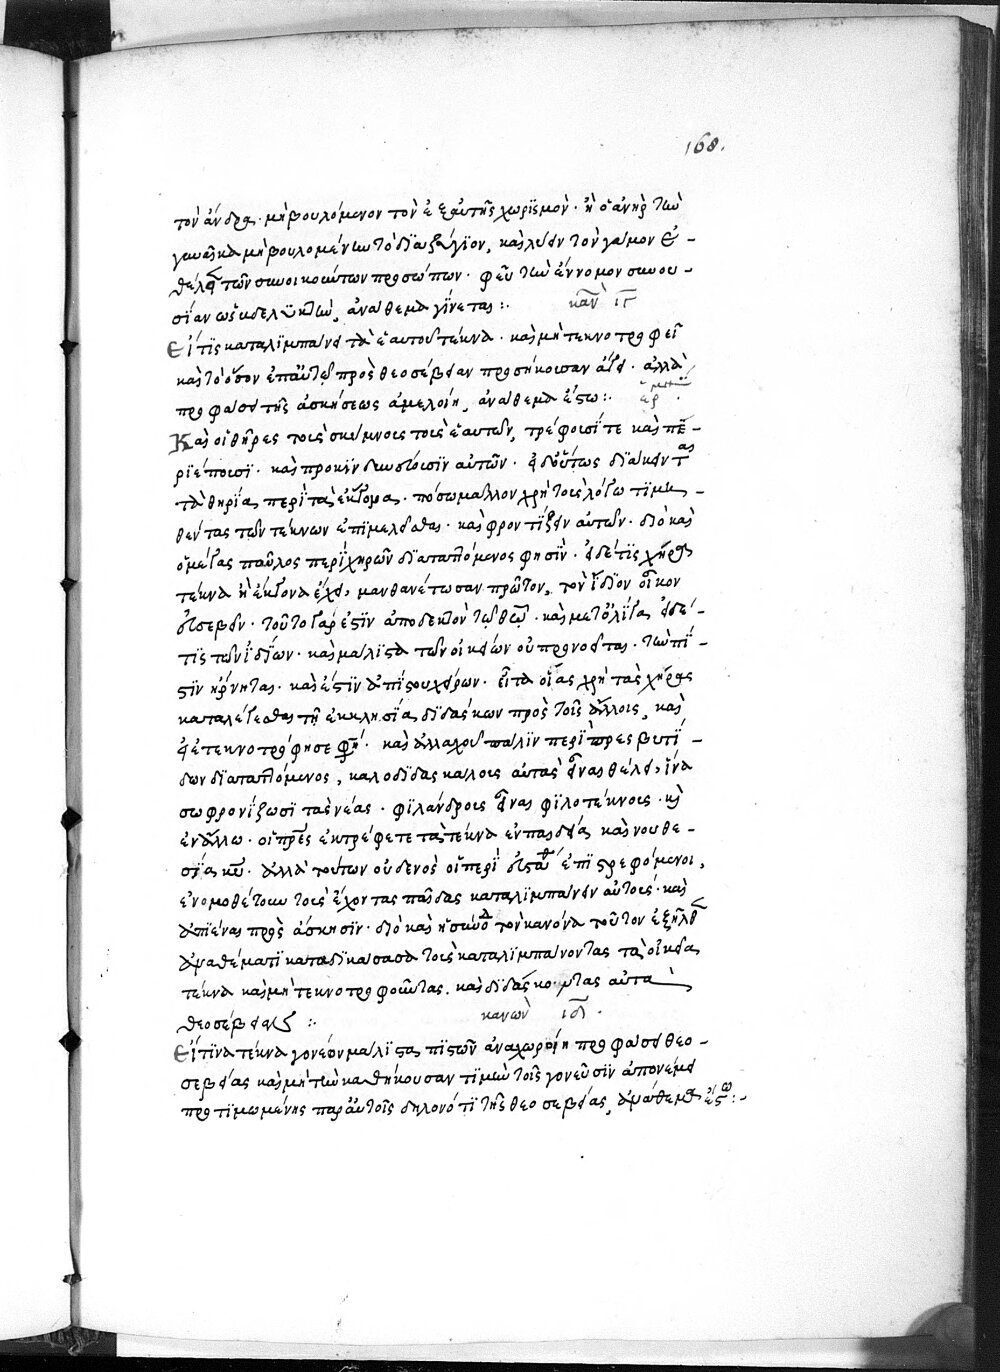 168.
τὸν ἄνδρα· μὴ βουλόμενον τὸν ἐξ αὐτῆς χωρισμόν· ἢ ὁ ἀνὴρ τὴν
γυναῖκα μὴ βουλομένην τὸ διαζύγιον, καὶ λύειν τὸν γάμον ἐ-
θέλει τῶν συνοικούντων προσώπων· φεῦ τὴν ἔννομον συνου-
σίαν ὡς βδελυκτὴν, ἀνάθεμα γίνεται:· κανὼν ιε
Εἴ τις καταλιμπάνει τὰ ἑαυτοῦ τέκνα· καὶ μὴ τεκνοτροφεῖ
καὶ τὸ ὅσον ἐπ' αὐτῷ πρὸς θεοσέβειαν προσήκουσαν ἄγει· ἀλλὰ
προφάσει τῆς ἀσκήσεως ἀμελοίη, ἀνάθεμα ἔστω:· ἑρμη
Καὶ οἱ θῆρες τοὺς σκύμνους τοὺς ἑαυτῶν, τρέφουσί τε καὶ πε-
ριέπουσι· καὶ προκινδυνεύουσιν αὐτῶν· εἰ δ' οὕτως διάκεινται
τὰ θηρία, περὶ τὰ ἔκγονα· πόσῳ μᾶλλον χρὴ τοὺς λόγῳ τιμη-
θέντας τῶν τέκνων ἐπιμελεῖσθαι· καὶ φροντίζειν αὐτῶν· διὸ καὶ
ὁ μέγας παῦλος περὶ χηρῶν διαταττόμενος φησὶν· εἰ δέ τις χήρα
τέκνα ἢ ἔκγονα ἔχει, μανθανέτωσαν πρῶτον, τὸν ἴδιον οἶκον
εὐσεβεῖν· τοῦτο γάρ ἐστιν ἀποδεκτὸν τῷ θεῷ· καὶ μετ' ὀλίγα εἰ δέ
τις τῶν ἰδίων· καὶ μάλιστα τῶν οἰκείων οὐ προνοεῖται· τὴν πί-
στιν ἤρνηται· καὶ ἔστιν ἀπίστου χείρων· εἶτα οἵας χρὴ τὰς χήρας
καταλέγεσθαι τῇ ἐκκλησίᾳ διδάσκων πρὸς τοῖς ἄλλοις, καὶ
εἰ ἐτεκνοτρόφησε φησί· καὶ ἀλλαχοῦ πάλιν περὶ πρεσβυτί-
δων διαταττόμενος, καλοδιδασκάλους αὐτὰς εἶναι θέλει, ἵνα
σωφρονίζωσι τὰς νέας· φιλάνδρους εἶναι φιλοτέκνους· καὶ
ἐν ἄλλῳ· οἱ πατέρες ἐκτρέφετε τὰ τέκνα ἐν παιδείᾳ καὶ νουθε-
σίᾳ κυρίου· ἀλλὰ τούτων οὐδενὸς οἱ περὶ εὐστάθιον ἐπιστρεφόμενοι,
ἐνομοθέτουν τοὺς ἔχοντας παῖδας καταλιμπάνειν αὐτούς· καὶ
ἀπιέναι πρὸς ἄσκησιν· διὸ καὶ ἡ σύνοδος τὸν κανόνα τοῦτον ἐξῆλθε
ἀναθέματι καταδικάσασα τοὺς καταλιμπάνοντας τὰ οἰκεῖα
τέκνα καὶ μὴ τεκνοτροφοῦντας. καὶ διδάσκοντας αὐτὰ
θεοσέβειαν:· κανὼν ιϛ·
Εἴ τινα τέκνα γονέων μάλιστα πιστῶν ἀναχωροίη προφάσει θεο-
σεβείας καὶ μὴ τὴν καθήκουσαν τιμὴν τοῖς γονεῦσιν ἀπονέμει
προτιμωμένης παρ' αὐτοῖς δηλονότι τῆς θεοσεβείας, ἀνάθεμα ἔστω:·